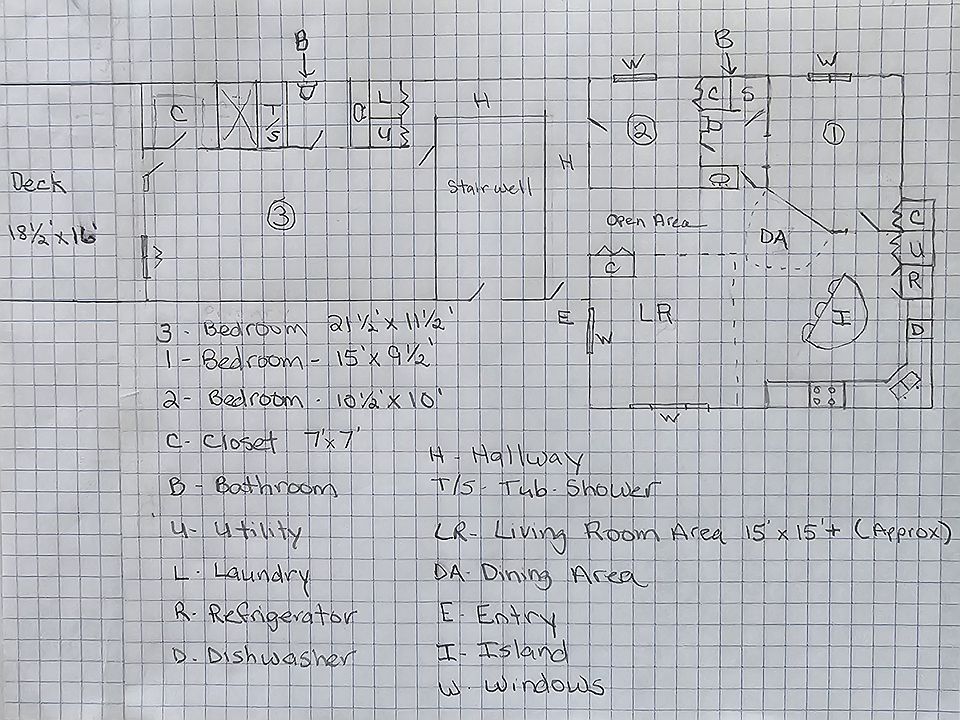 B
B
W
W
H
C
T
/
S
L
U
C
S
2
1
H
Deck
18½' x 16'
3
Stairwell
Open Area
DA
C
U
R
C
E
LR
W
I
D
W
3 - Bedroom 21½' x 11½'
1 - Bedroom - 15' x 9½'
2 - Bedroom - 10½' x 10'
C - Closet 7' x 7'
B - Bathroom
U - Utility
L - Laundry
R - Refrigerator
D - Dishwasher
H - Hallway
T/S - Tub-Shower
LR - Living Room Area 15' x 15' + (Approx)
DA - Dining Area
E - Entry
I - Island
W - Windows